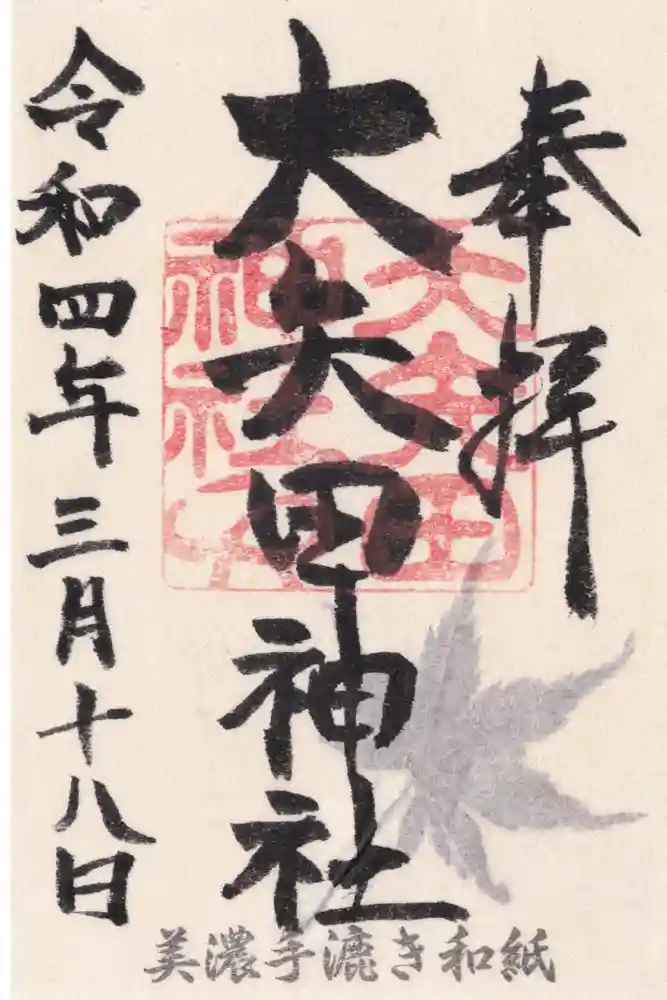 奉拝
大矢田神社
令和四年三月十八日
大矢田
神社
美濃手漉き和紙